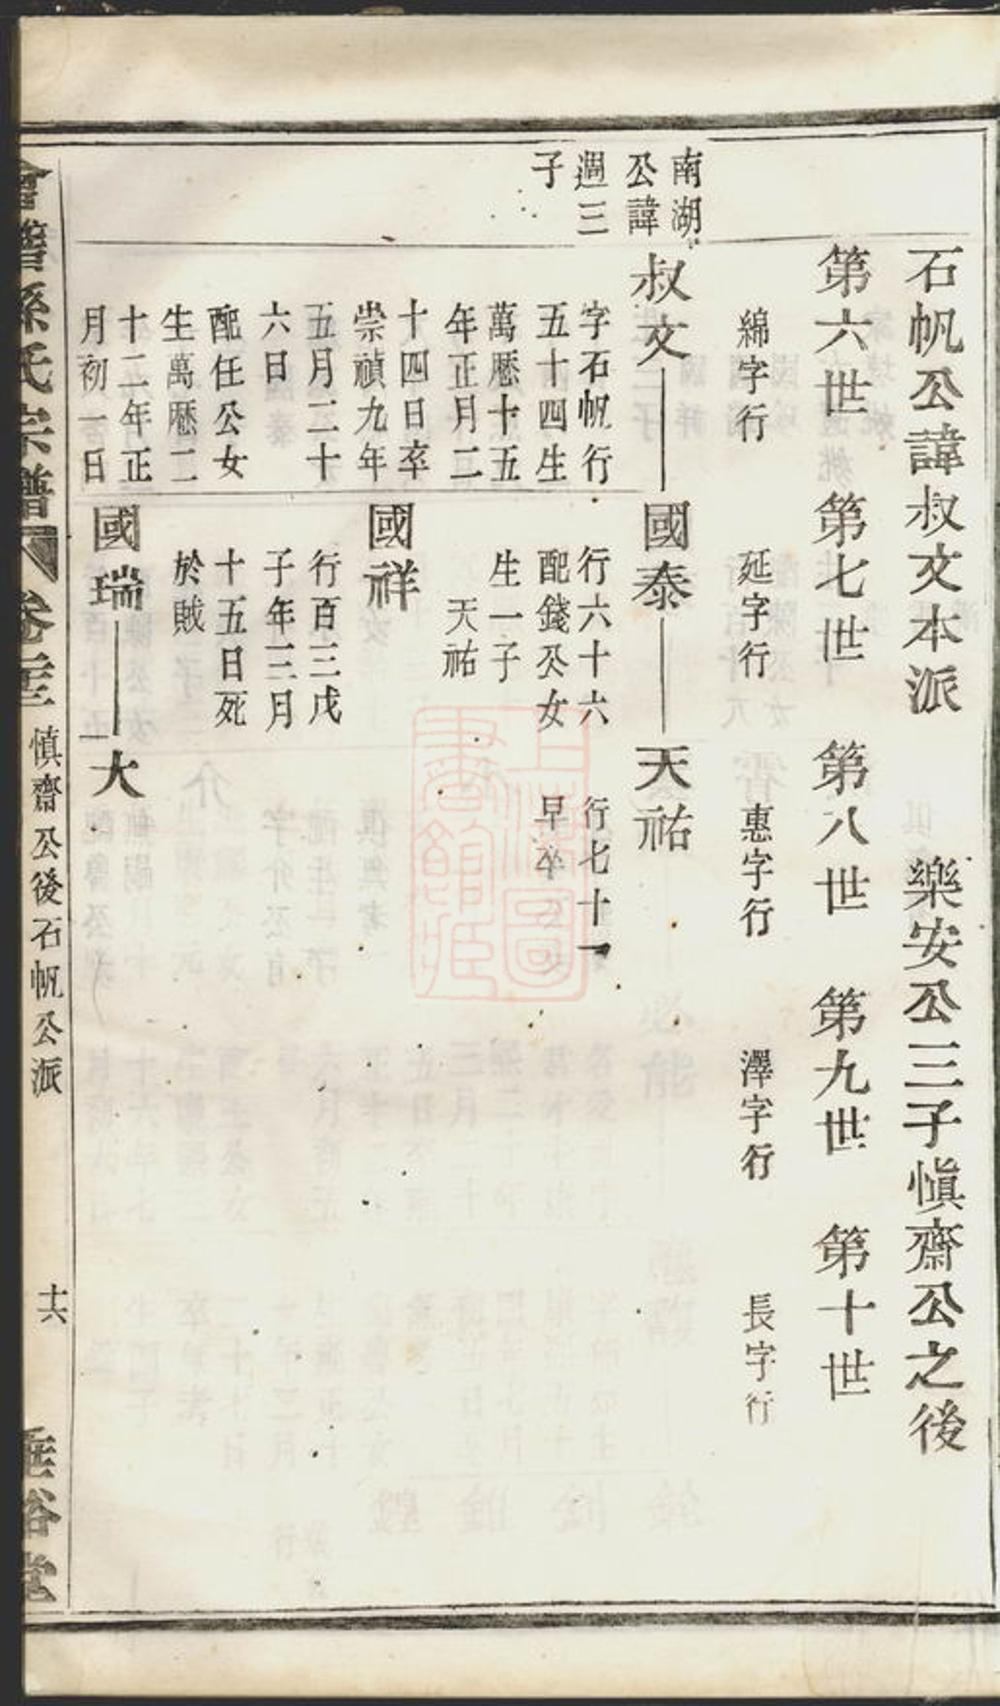 石帆公諱叔文本派　樂安公三子慎齋公之後
第六世　第七世　第八世　第九世　第十世
綿字行　延字行　惠字行　澤字行　長字行
南湖
公諱
週三
子
叔文
國泰
天祐
字石帆行
五十四生
萬曆十五
年正月二
十四日卒
崇禎九年
五月二十
六日
配任公女
生萬曆二
十二年正
月初一日
行六十六
配錢公女
生一子
天祐
行七十一
早卒
國祥
行百三戊
子年三月
十五日死
於賊
國瑞
大
會稽孫氏宗譜 卷二三 慎齋公後石帆公派 十六 垂裕堂
上海圖
書館藏